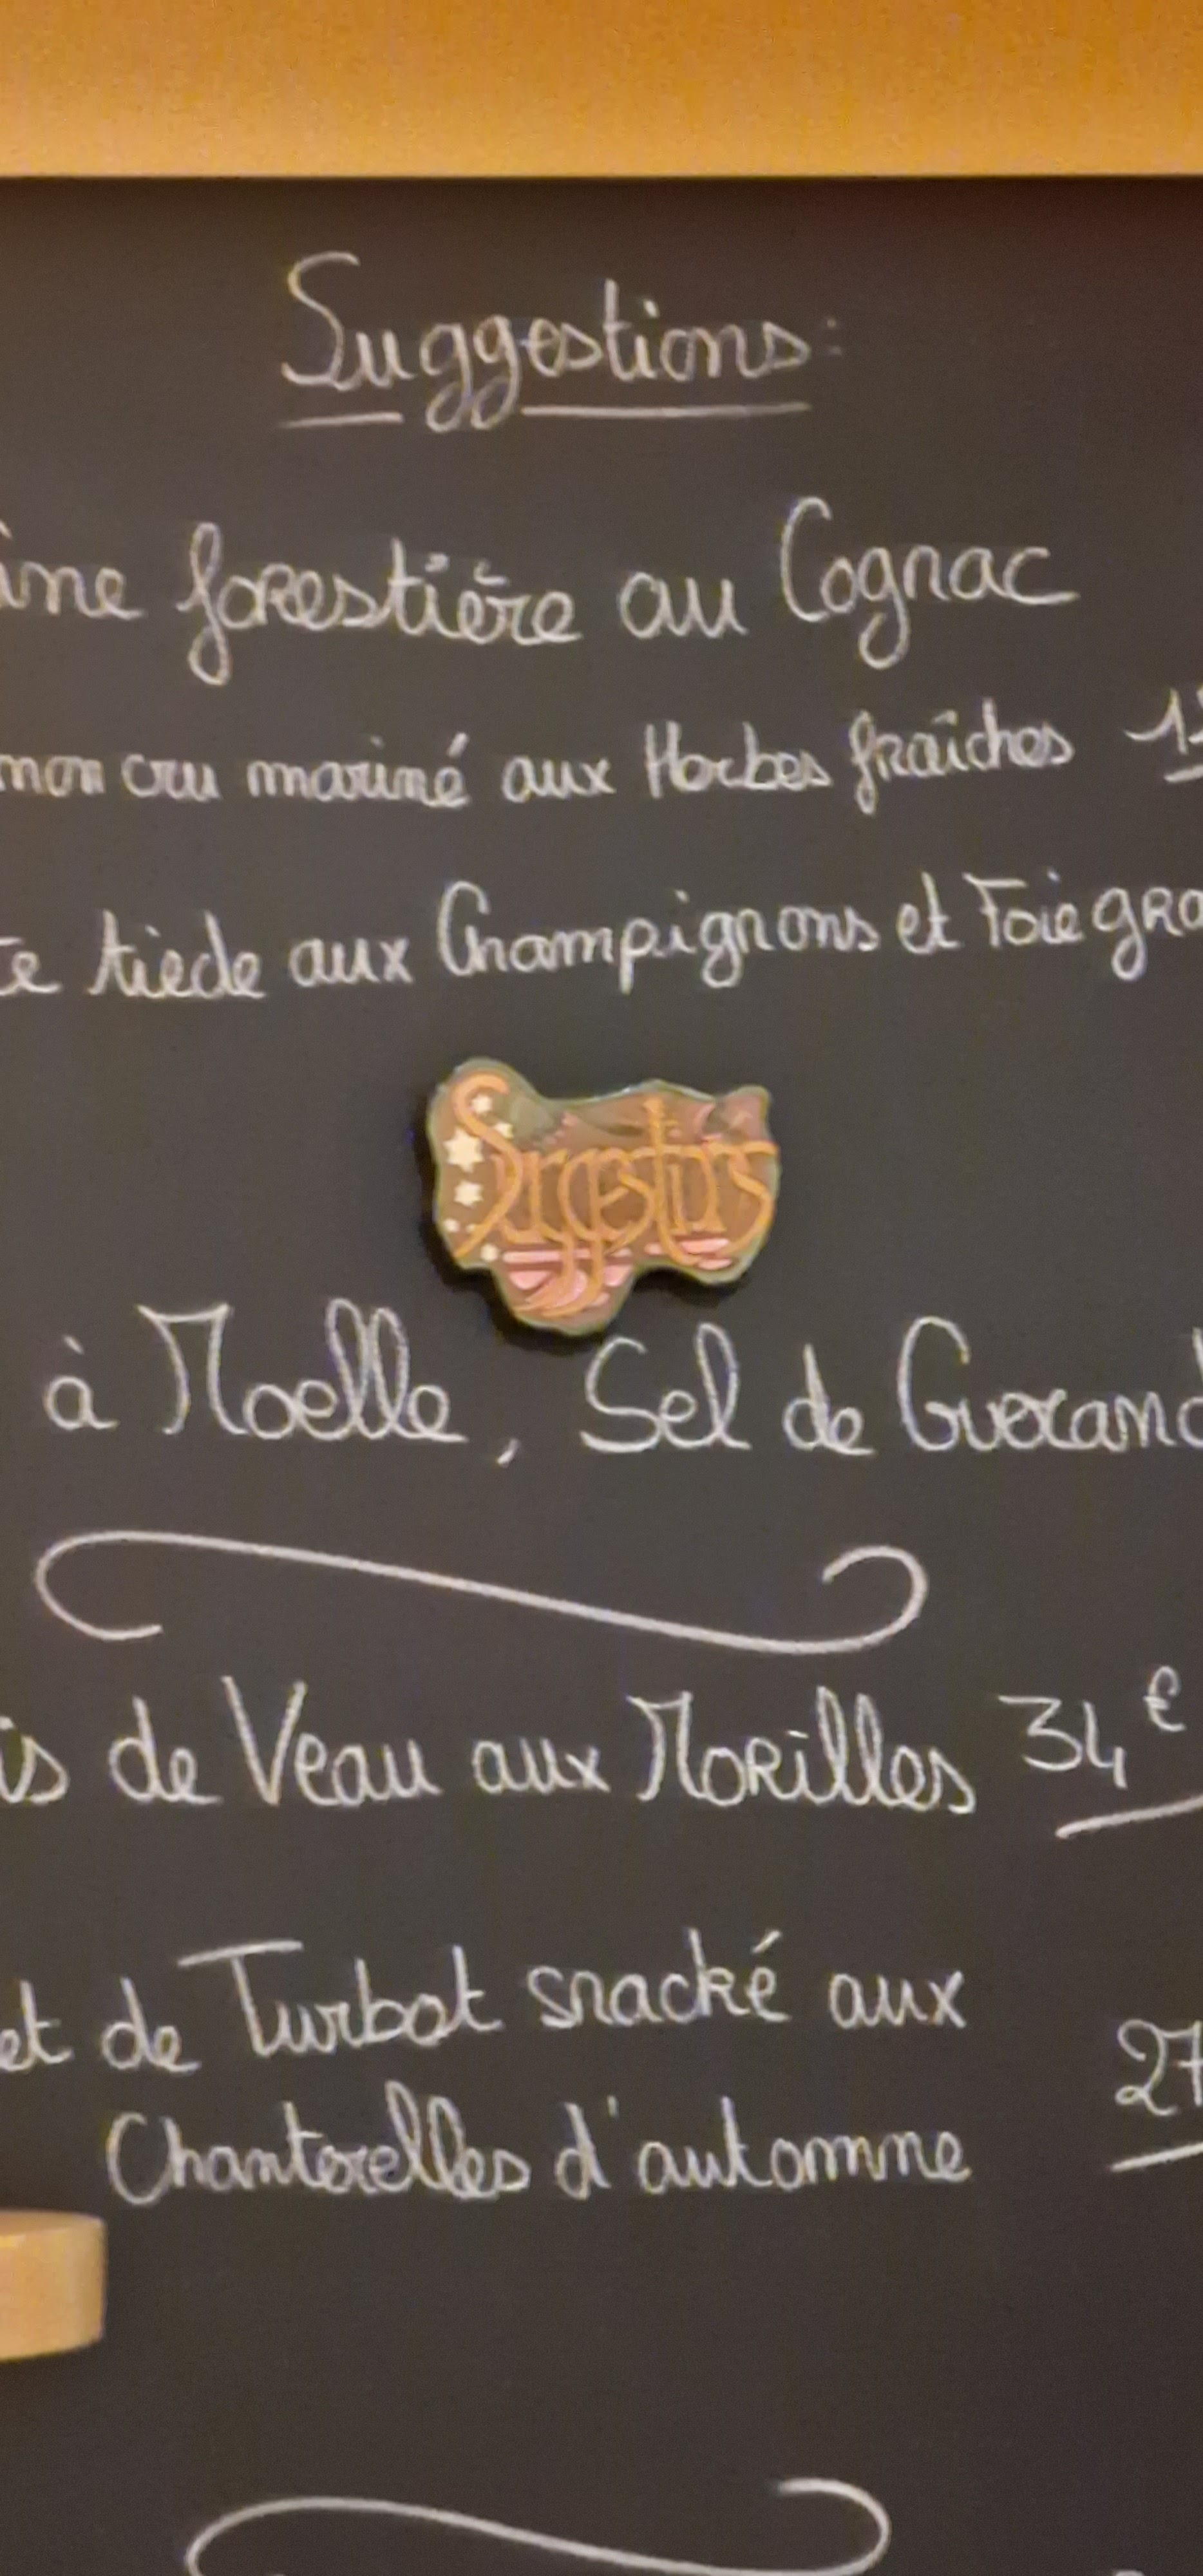 Suggestions:
ine forestière au Cognac
mon cru mariné aux Herbes fraîches
te tiède aux Champignons et Foie gra
à Moelle, Sel de Guerand
is de Veau aux Morilles 34€
et de Turbot snacké aux
27
Chanterelles d'automne